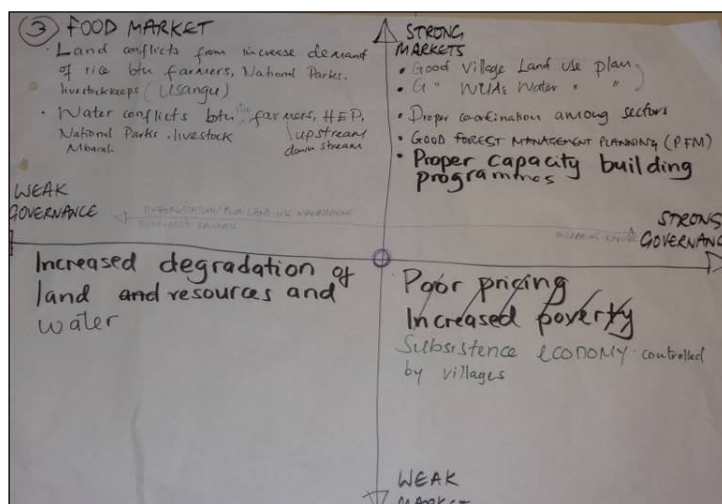 ③ FOOD MARKET
· Land conflicts from increase demand
of rice btn farmers, National Parks.
livestock keeps (Usangu)
· Water conflicts btn farmers, HEP,
National Parks. livestock
Mbarali
upstream
down stream
STRONG
MARKETS
• Good Village Land use plan
• G " WUAs Water " "
• Proper coordination among sectors
• GOOD FOREST MANAGEMENT PLANNING (PFM)
• Proper capacity building
programmes
WEAK
GOVERNANCE
STRONG
GOVERNANC
Increased degradation of
land and resources and
water
Poor pricing
Increased poverty
Subsistence economy controlled
by villages
WEAK
MARKET